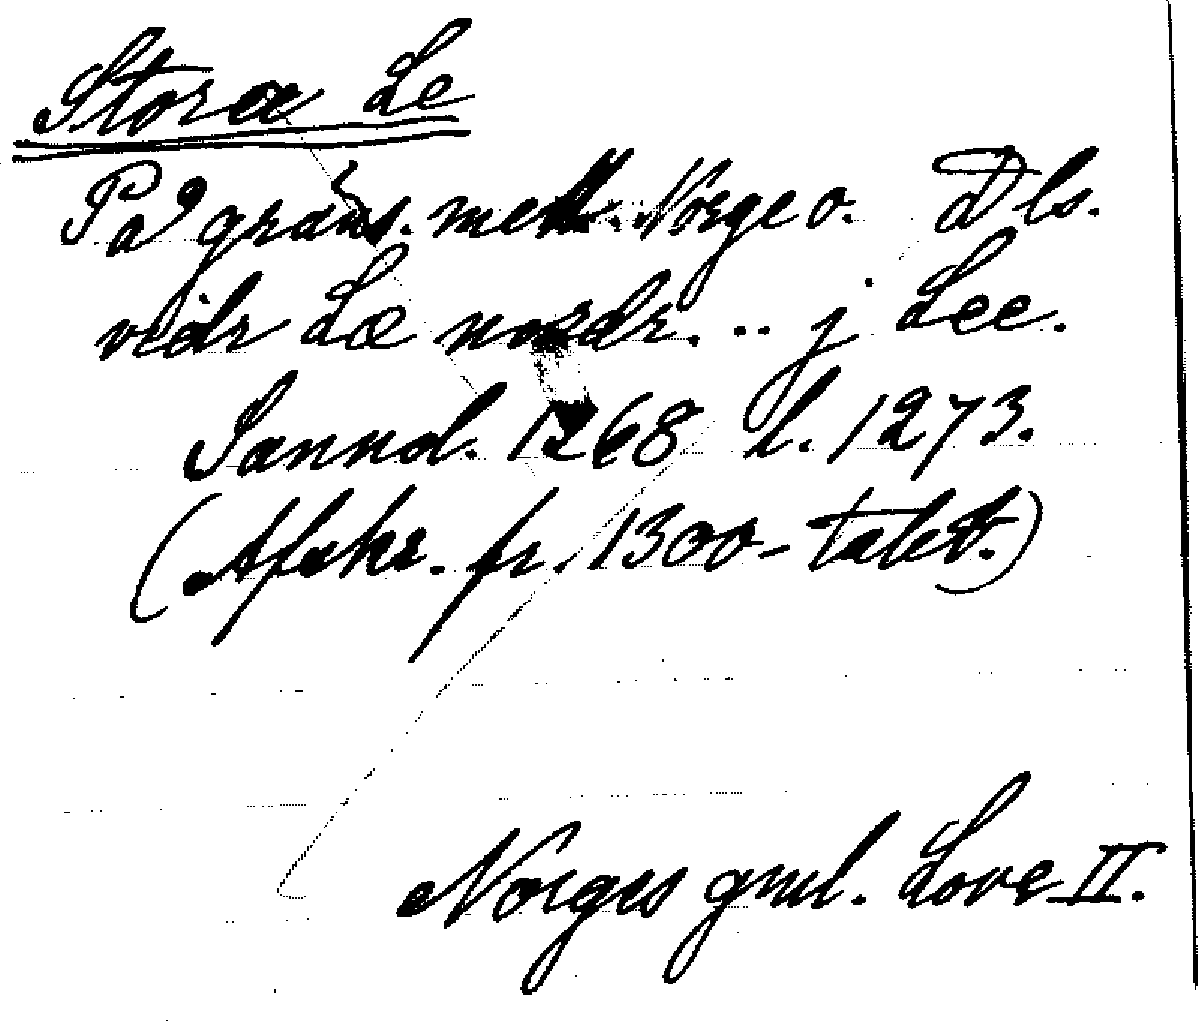 Stora Le
På gräns. mell. Norge o. Dls.
vidr Læ nordr. .. j Lee.
Sannol. 1268 l. 1273.
(Afskr. fr. 1300-talet.)
Norges gml. Love II.